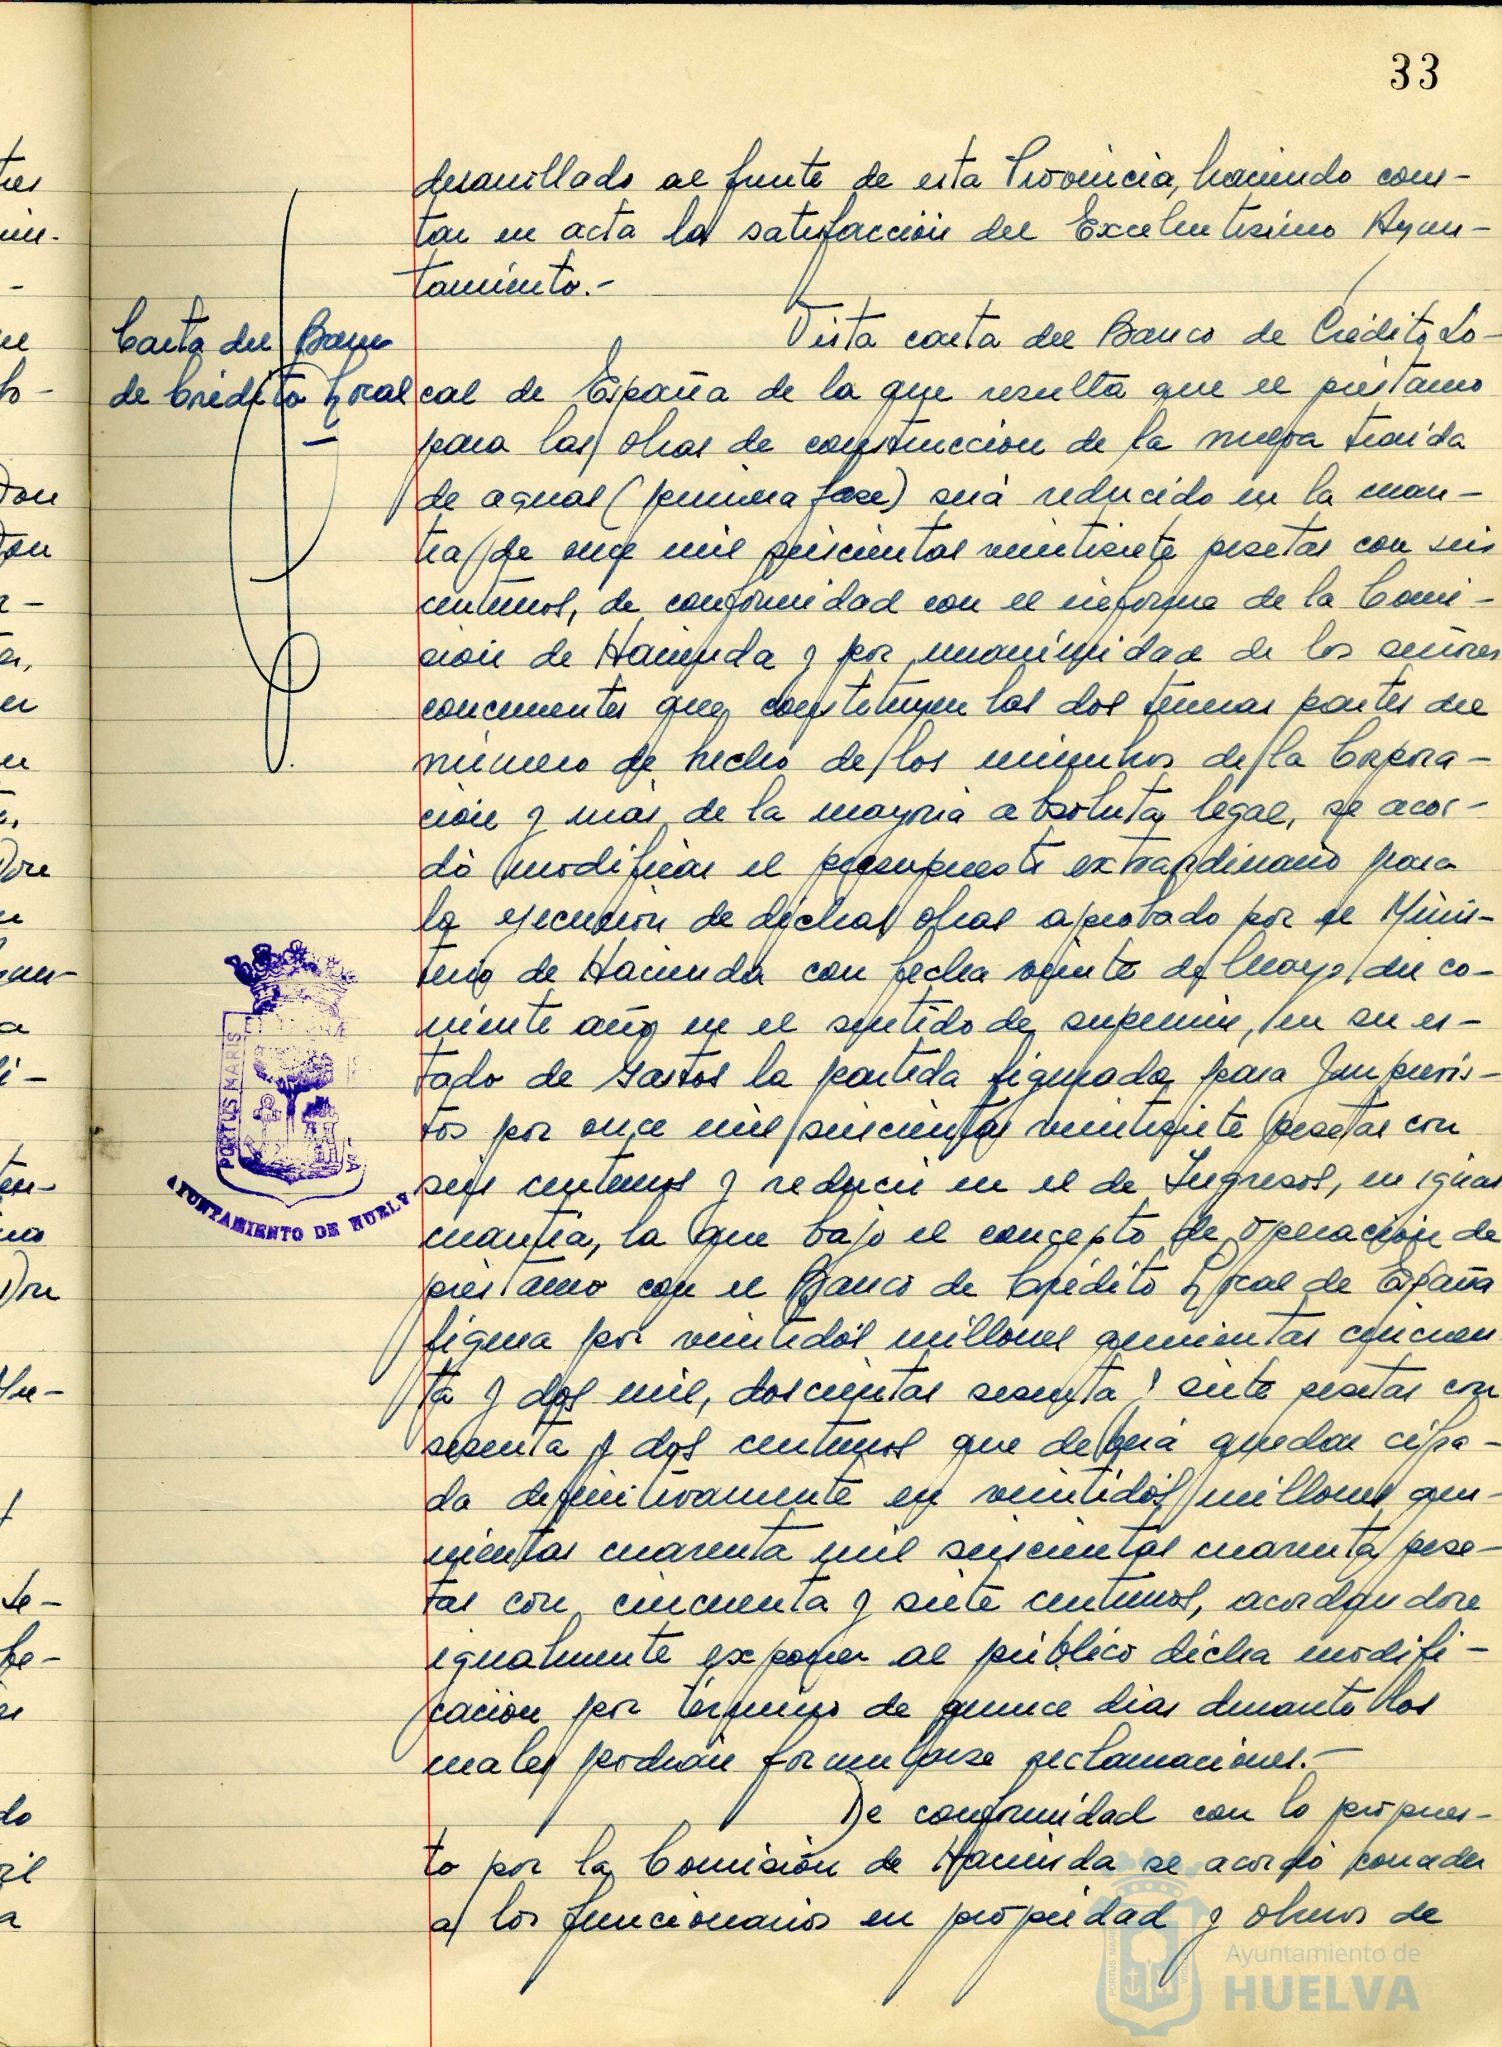 33
desarrollado al frente de esta Provincia, haciendo cons-
tar en acta la satisfacción del Excelentísimo Ayun-
tamiento.-
Carta del Banco
de Crédito Local
Vista carta del Banco de Crédito Lo-
cal de España de la que resulta que el préstamo
para las obras de construccion de la nueva traida
de aguas (primera fase) será reducido en la cuan-
tia de once mil seiscientas veintisiete pesetas con seis
centimos, de conformidad con el informe de la Comi-
sión de Hacienda y por unanimidad de los señores
concurrentes que constituyen las dos terceras partes del
número de hecho de los miembros de la Corpora-
ción y más de la mayoria absoluta legal, se acor-
dó modificar el presupuesto extraordinario para
la ejecución de dichas obras aprobado por el Minis-
terio de Hacienda con fecha veinte de Mayo del co-
rriente año en el sentido de suprimir, en su es-
tado de Gastos la partida figurada para Imprevis-
tos por once mil seiscientas veintisiete pesetas con
seis centimos y reducir en el de Ingresos, en igual
cuantia, la que bajo el concepto de operación de
préstamo con el Banco de Crédito Local de España
figura por veintidós millones quinientas cincuen
ta y dos mil, doscientas sesenta y siete pesetas con
sesenta y dos centimos que deberá quedar cifra-
da definitivamente en veintidós millones qui-
nientas cuarenta mil seiscientas cuarenta pese-
tas con cincuenta y siete centimos, acordandose
igualmente exponer al público dicha modifi-
cación por término de quince dias durante los
cuales podrán formularse reclamaciones.-
De conformidad con lo propues-
to por la Comisión de Hacienda se acordó conceder
a los funcionarios en propiedad y obreros de
PORTUS MARIS
AYUNTAMIENTO DE HUELVA
Ayuntamiento de
HUELVA